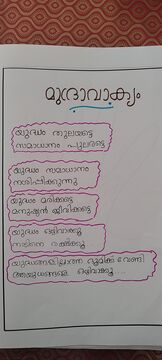 മുദ്രാവാക്യം
യുദ്ധം തുലയട്ടെ
സമാധാനം പുലരട്ടെ
യുദ്ധം സമാധാനം
നശിപ്പിക്കുന്നു
യുദ്ധം മരിക്കട്ടെ
മനുഷ്യൻ ജീവിക്കട്ടെ
യുദ്ധം ഒഴിവാക്കൂ
നാടിനെ രക്ഷിക്കൂ
യുദ്ധങ്ങളില്ലാത്ത ഭൂമിക്ക് വേണ്ടി
ആയുധങ്ങളെ ഒഴിവാക്കൂ....